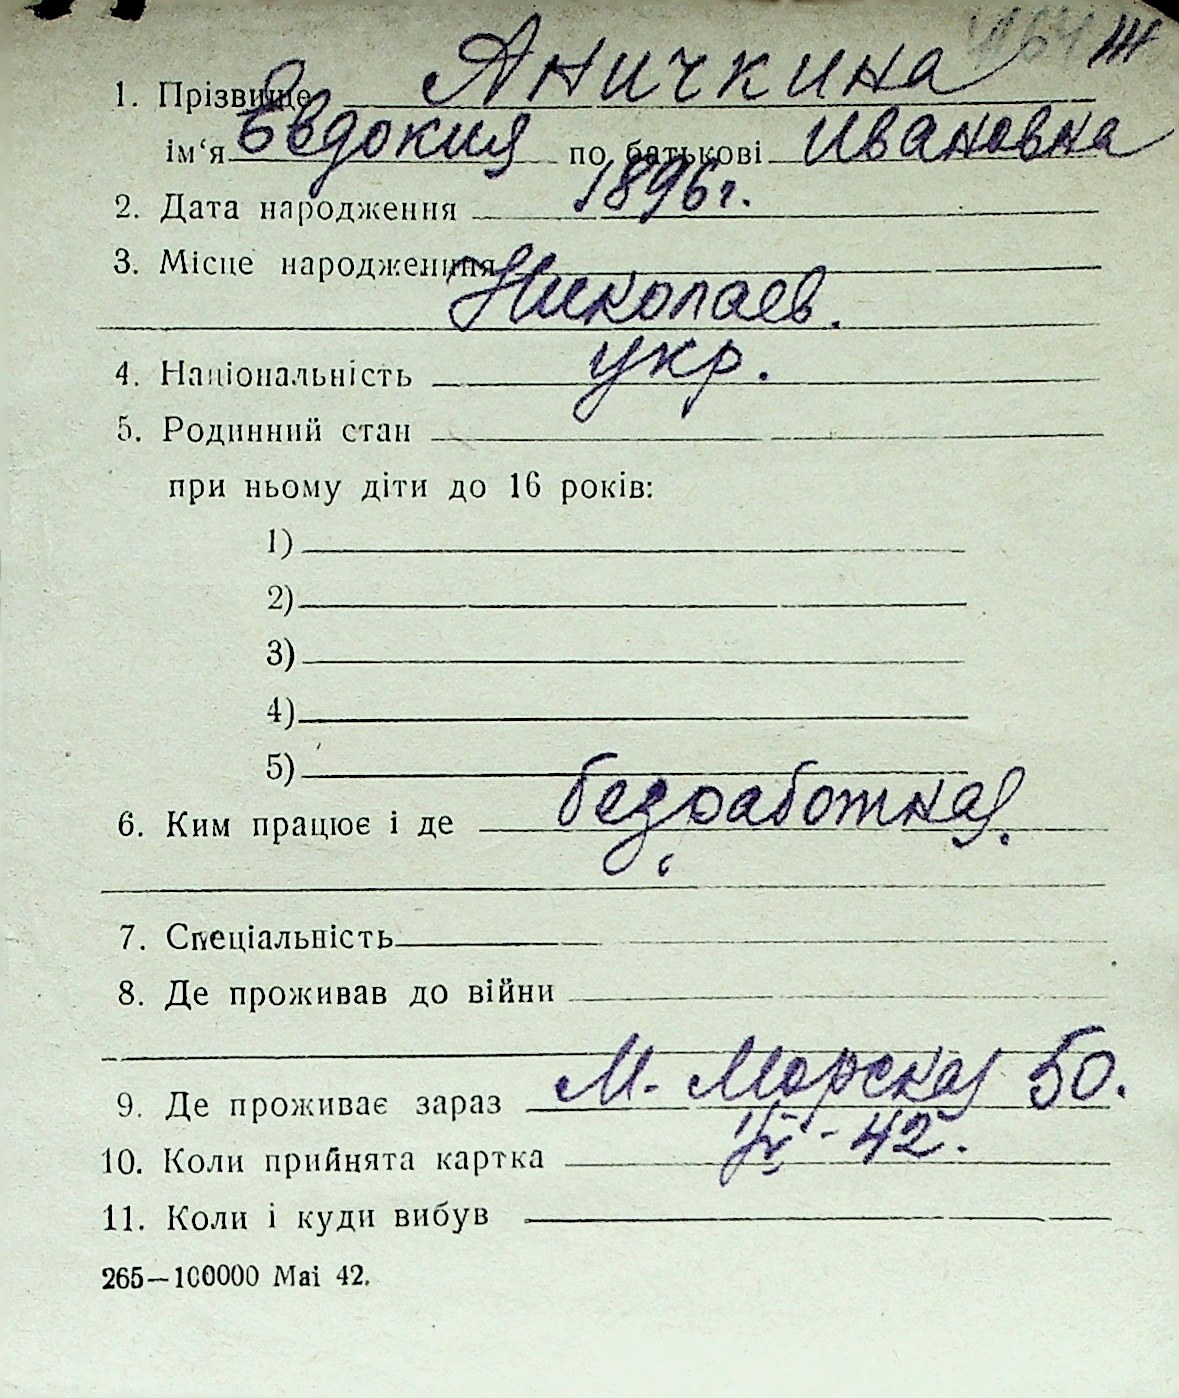 1. Прізвище Аничкина
ім‘я Евдокия по батькові Ивановна
2. Дата народження 1896г.
3. Місце народження
Николаев.
4. Національність укр.
5. Родинний стан
при ньому діти до 16 років:
1)
2)
3)
4)
5)
6. Ким працює і де безработная.
7. Спеціальність
8. Де проживав до війни
9. Де проживає зараз М. Морская 50.
10. Коли прийнята картка 42.
11. Коли і куди вибув
265—100000 Mai 42.